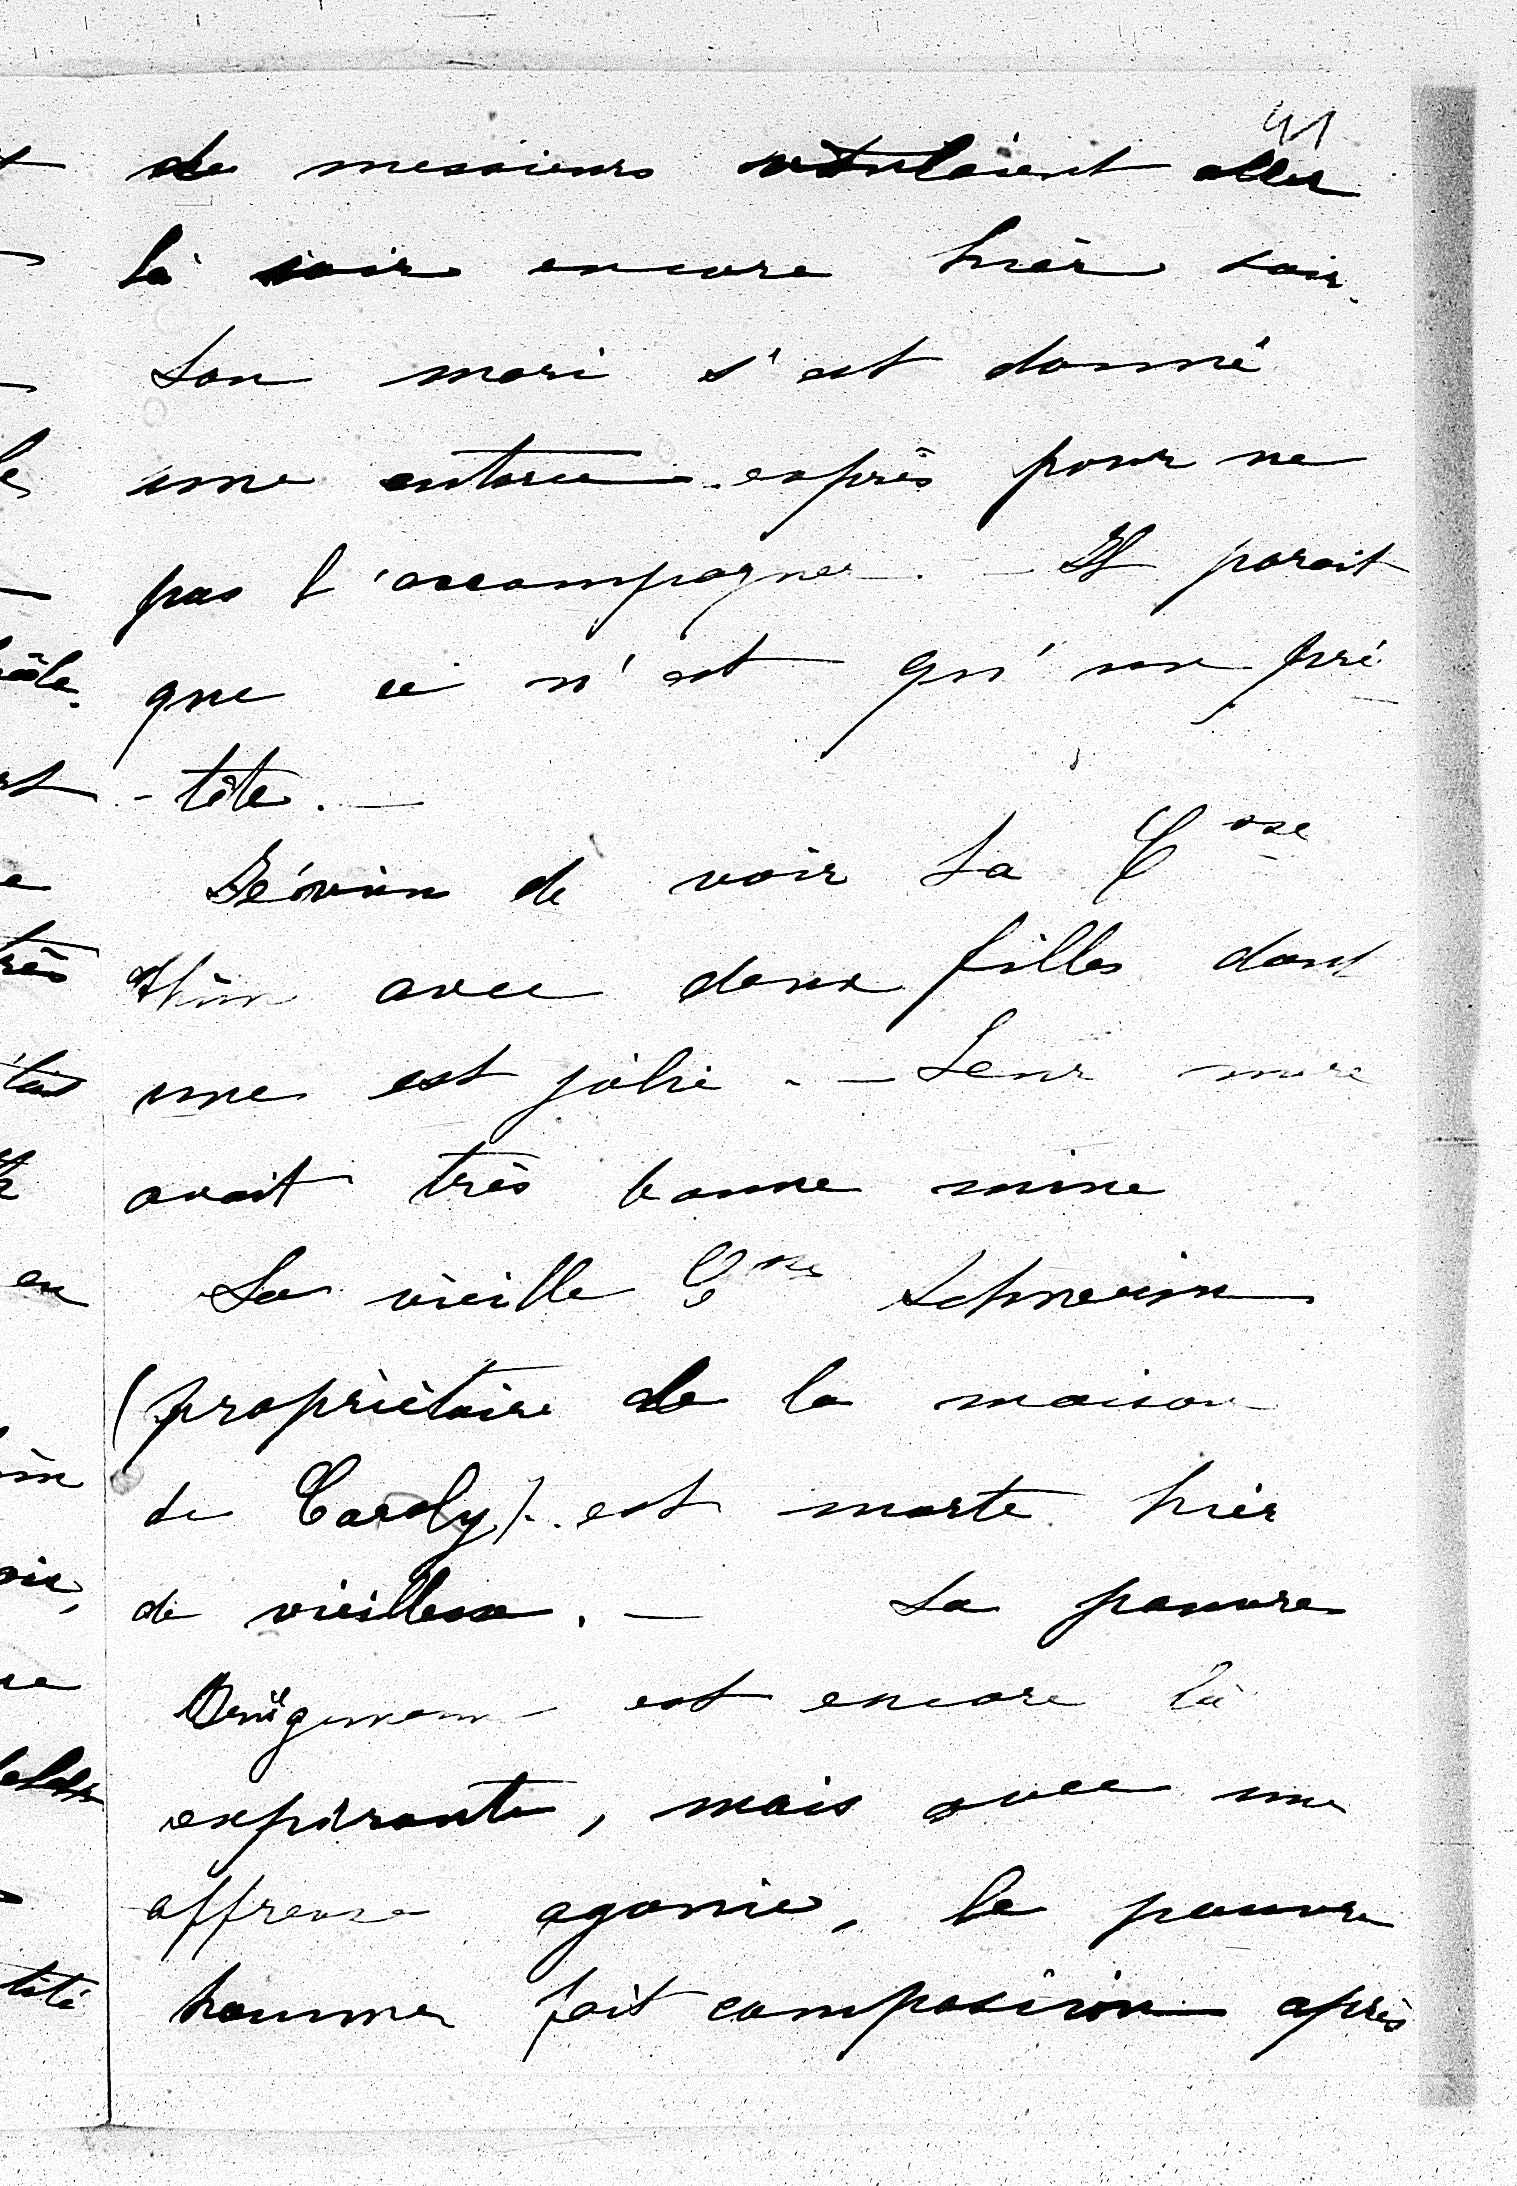 41
de messieurs voulaient aller
la voir encore hier soir.
Son mari s'est donné
une entorse exprès pour ne
pas l'accompagner. — Il parait
que ce n'est qu'un pré
- tête. —
de voir la C
Thün avec deux filles dont
une est jolie. — Leur mère
avait très bonne mine
La vieille Schwerin
(propriétaire de la maison
de Caroly). est morte hier
de vieillesse. — La pauvre
est encore là
expirante, mais avec une
affreuse agonie, le pauvre
homme fait après